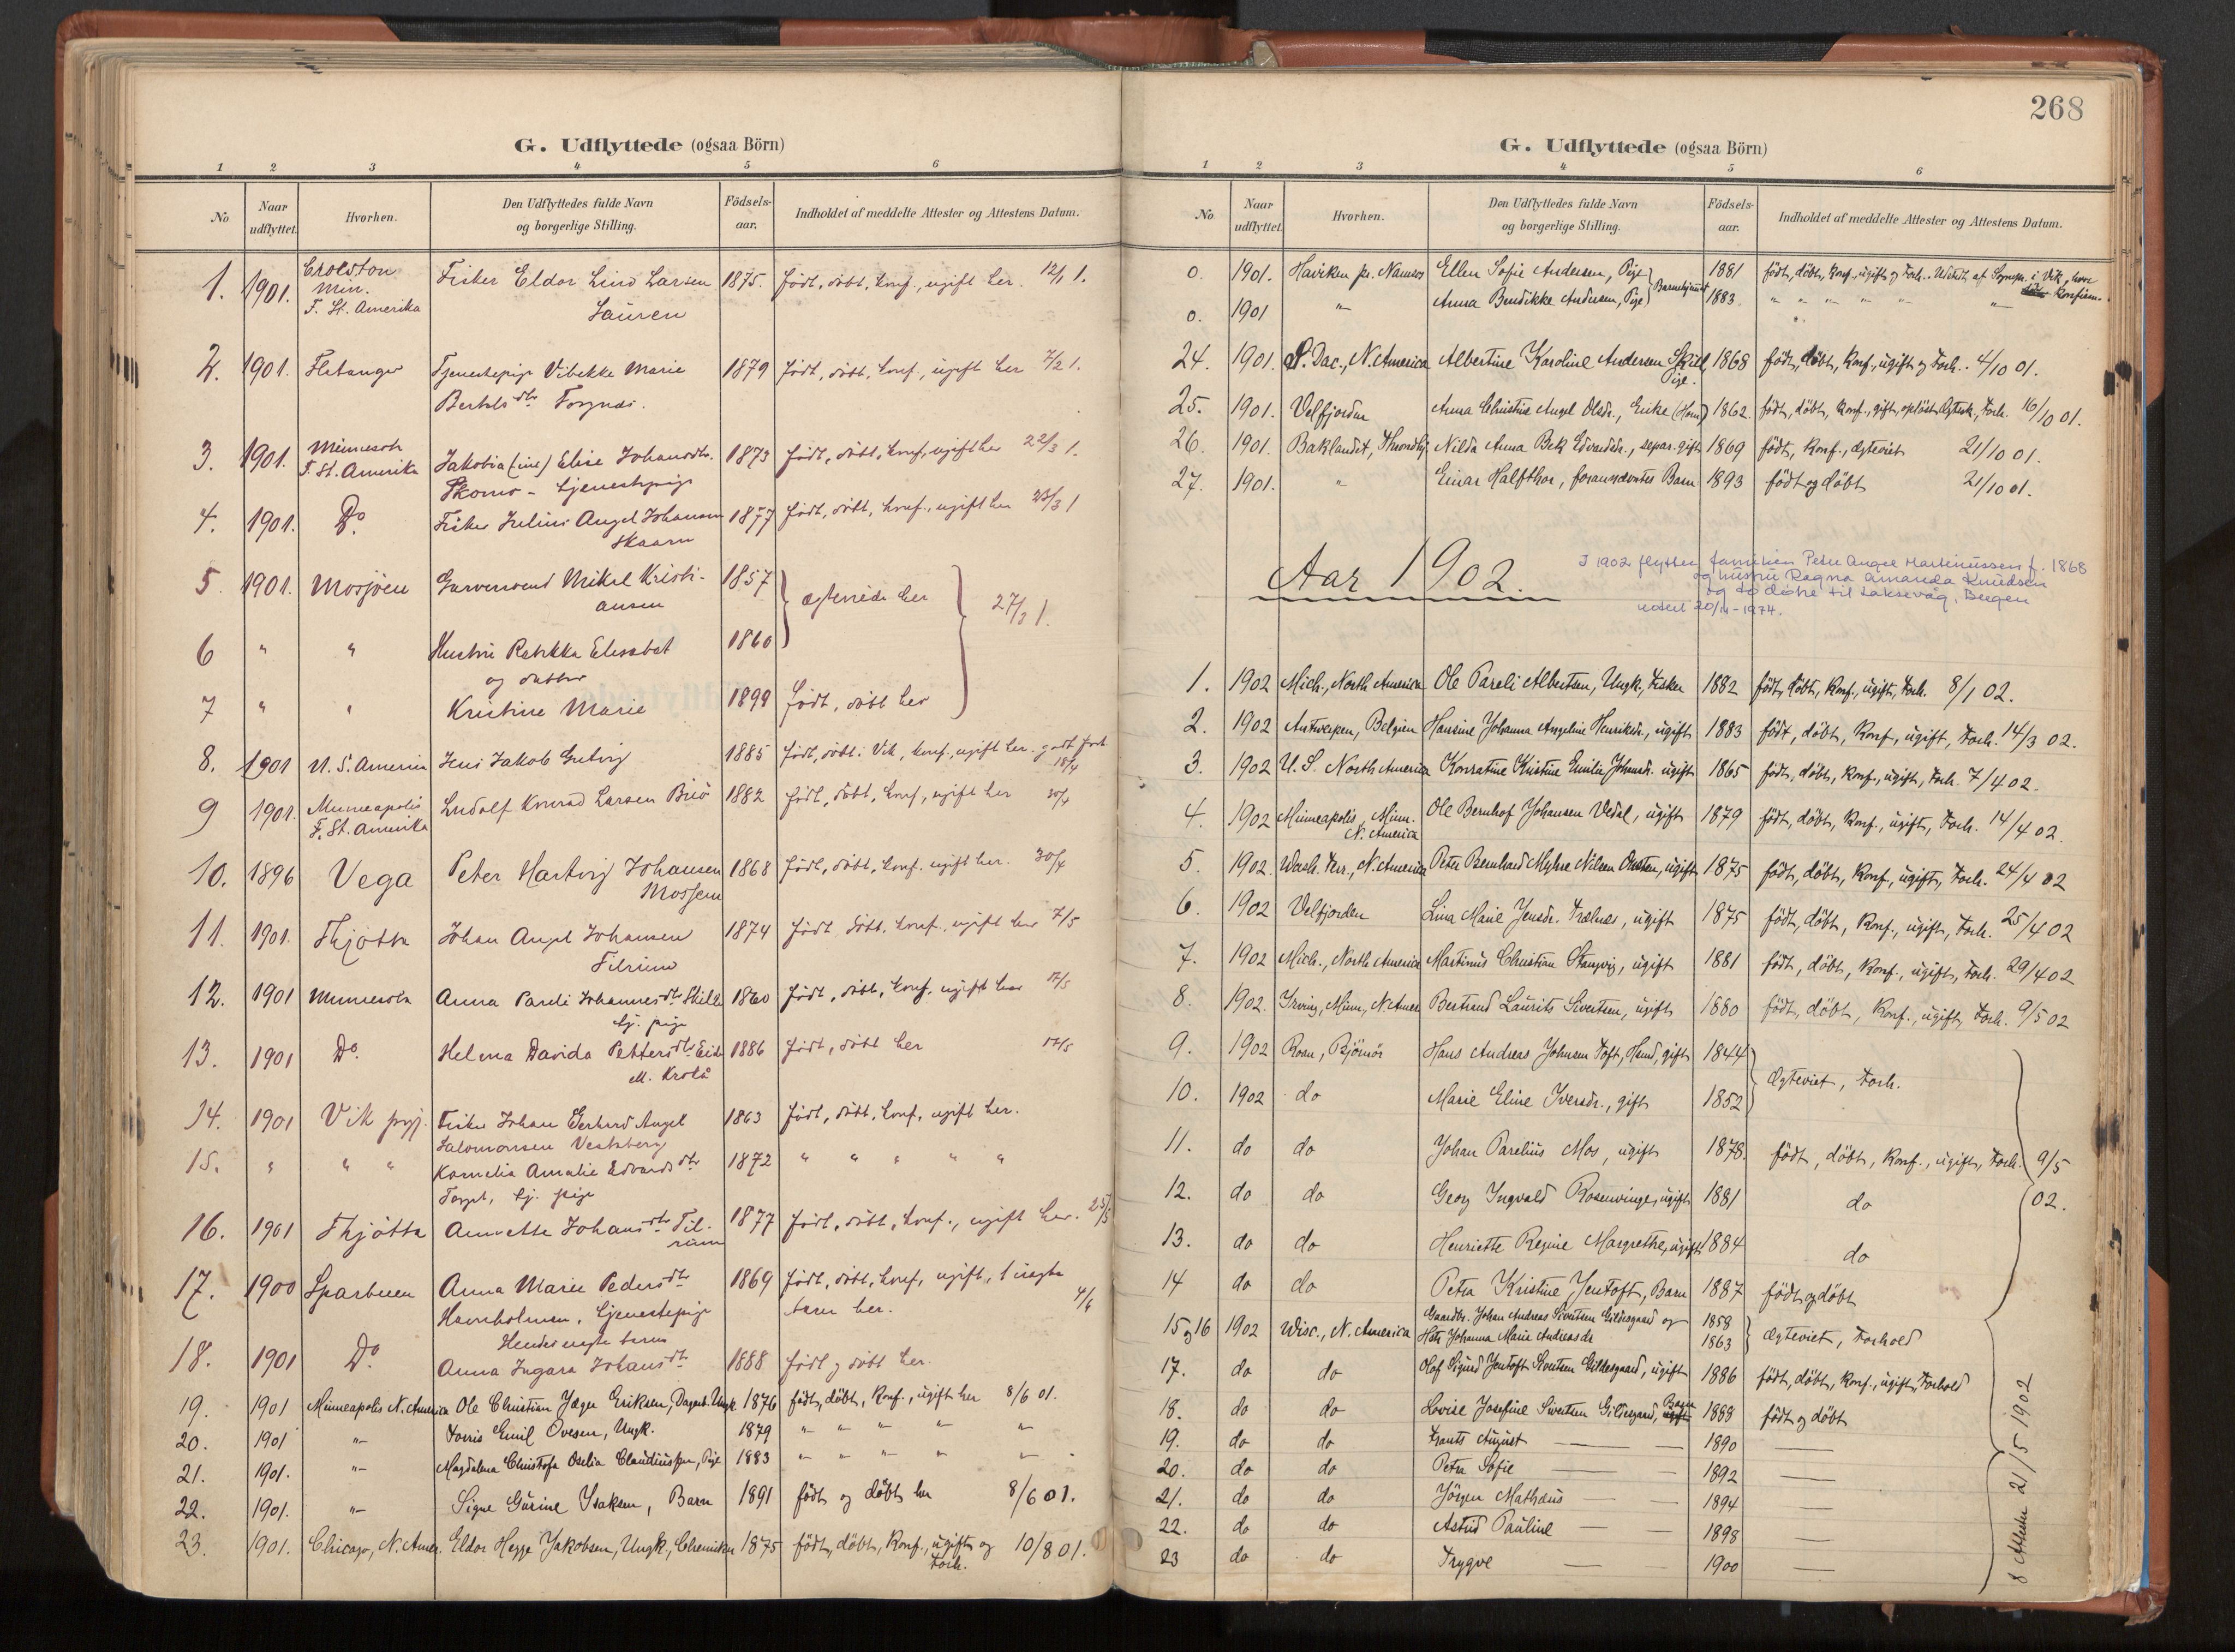 G. Udflyttede (ogsaa Börn)
1 2 3 4 5 6
No Naar udflyttet. Hvorhen. Den Udflyttedes fulde Navn og borgerlige Stilling. Födsels-aar. Indholdet af meddelte Attester og Attestens Datum.
1. 1901. Min. F. St. Amerika Fisker Eldor Lind Larsen 1875. født, döbt, konf., ugift her. 12/1 1.
2. 1901. Flatanger Tjenestepige Vibekke Marie 1879 født, döbt, konf., ugift her 7/2 1.
Bertels dtr
3. 1901. Minnesota F. St. Amerika Jakobia (ine) Elise Johansdtr. 1873 født, döbt, konf., ugift her 22/3 1.
Skomo - tjenestepige
4. 1901. Do. Fisker Julius Angel Johansen 1877 født, döbt, konf., ugift her 23/3 1
5. 1901. Mosjöen Mikal Kristi- 1857 ægteviede her 27/3 1.
ansen
6 " " Hustru Rebekka Elisabet 1860
og datter
7 " " Kristine Marie 1899 født, döbt her
8. 1901 U. S. America Jens Jakob 1885 født, döbt i Vik, konf., ugift her. godt forh. 18/4
9 1901. Minneapolis F. St. Amerika Ludolf Konrad Larsen 1882 født, döbt, konf., ugift her 30/4
10. 1896 Vega Peter Hartvig Johansen 1868 født, döbt, konf. ugift her. 30/4
Mossem
11. 1901. Thjøtta Johan Angel Johansen 1874 født, döbt, konf., ugift her 7/5
Tilrum
12. 1901 Minnesota Anna Pareli Johannesdtr 1860 født, döbt, konf., ugift her 17/5
tj. pige
13. 1901 Do. Helena Davida Pettersdtr 1886 født, döbt her 17/5
14. 1901 Vik prgj. Fisker Johan Gerhard Angel 1863 født, döbt, konf., ugift her.
Salomonsen
15. " " " Kornelia Amalie Edvardsdtr 1872 " " " " "
Torget, tj. pige
16. 1901 Thjøtta Annette Johansdtr Til- 1877 født, döbt, konf., ugift her. 25/5
rum
17. 1900 Sparbuen Anna Marie Pedersdtr 1869 født, döbt, konf., ugift, 1 uægte
Havnholmen, tjenestepige barn her. 4/6
Hendes uægte barn
18. 1901 Do Anna Ingara Johansdt 1888 født og döbt her.
19. 1901 Minneapolis N. America Ole Christian Jæger Eriksen, Dagarb. Ungk. 1876 født, döbt, Konf., ugift her 8/6 01.
20. 1901 " Emil Ovesen, Ungk. 1879 " " " " "
21. 1901. " Magdalena Christofa Oselia Claudiusen, Pige 1883 " " " " "
22. 1901. " Signe Gurine Isaksen, Barn 1891 født og döbt her 8/6 01.
23. 1901. Chicago, N. Amer. Eldor Hegge Jakobsen, Ungk., 1875 født, döbt, Konf., ugift og 10/8 01.
Forh.
268
G. Udflyttede (ogsaa Börn)
1 2 3 4 5 6
No Naar udflyttet. Hvorhen. Den Udflyttedes fulde Navn og borgerlige Stilling. Födsels-aar. Indholdet af meddelte Attester og Attestens Datum.
0. 1901. Haviken pr. Namsos Ellen Sofie Andersen, Pige 1881 født, döbt, Konf., ugift og Forh. i Vik, hvor
0. 1901 " Anna Bendikke Andersen, Pige 1883 " " " " " Konfirm.
24. 1901. N. Dac., N. America Albertine Karoline Andersen 1868 født, döbt, Konf., ugift og Forh. 4/10 01.
Pige.
25. 1901. Velfjorden Anna Christine Angel Olsdr., Enke 1862 født, döbt, Konf., gift, Forh. 16/10 01.
26. 1901. Baklandet, Throndhj. Nilda Anna Bek Edvardsdr., separ. gift 1869 født, Konf., Ægteviet 21/10 01.
27. 1901. " Einar Halfthor, forannævntes Barn 1893 født og döbt 21/10 01.
Aar 1902.
I 1902 flytter familien Peter Angel Martinussen f. 1868
og hustru Ragna Amanda Knudsen
og to døtre til Laksevåg, Bergen
notert 20/11-1974.
1. 1902 Mich., North America Ole Pareli Albertsen, Ungk., Fisker 1882 født, döbt, Konf., ugift, Forh. 8/1 02.
2. 1902 Antwerpen, Belgien Hansine Johanna Angeline Henriksdr., ugift 1883 født, döbt, Konf., ugift, Forh. 14/3 02.
3. 1902 U. S. North America Konratine Kristine Emilie Johansdr. ugift 1865 født, döbt, Konf., ugift, Forh. 7/4 02.
4. 1902 Minneapolis, Minn. Ole Bernhof Johansen Vedal, ugift 1879 født, döbt, Konf., ugift, Forh. 14/4 02.
N. America
5. 1902. Wash. Terr., N. America Peter Bernhard Myhre Nilsen, ugift 1875 født, döbt, Konf., ugift, Forh. 24/4 02
6. 1902 Velfjorden Lina Marie Jensdr. Trælnes, ugift 1875 født, döbt, Konf., ugift, Forh. 25/4 02
7. 1902 Mich., North America Martinus Christian Stangvig, ugift 1881 født, döbt, Konf., ugift, Forh. 29/4 02
8. 1902. Irving, Minn., N. Amer. Bertrand Laurits Sivertsen, ugift 1880 født, döbt, Konf., ugift, Forh. 9/5 02
9. 1902 Roan, Bjørnør Hans Andreas Johnsen Toft, gift 1844 Ægteviet, Forh.
10. 1902 do Marie Eline Iversdr., gift 1852
11. do do Johan Parelius Mos, ugift 1878. født, döbt, Konf., ugift, Forh. 9/5
12. do do Georg Ingvald Rosenvinge, ugift 1881 do 02.
13. do do Henriette Regine Margrethe, ugift 1884 do
14 do do Petra Kristine Jentoft, Barn 1887 født og döbt
15 og 16 1902 Wisc., N. America Gaardbr. Johan Andreas Sivertsen Gildesgaard og 1858 Ægteviet, Forhold
Hstr Johanna Marie Andreasdr 1863
17. do do Olaf Sigurd Jentoft Sivertsen Gildesgaard, ugift 1886 født, döbt, Konf., ugift, Forhold
18. do do Lovise Josefine Sivertsen Gildesgaard, Barn 1888 født og döbt
19. do do Frants August — — 1890 —
20. do do Petra Sofie — — 1892 —
21. do do Jörgen Mathæus — — 1894 —
22. do do Astrid Pauline — — 1898 —
23 do do Trygve — 1900 —
8 Attester 21/5 1902